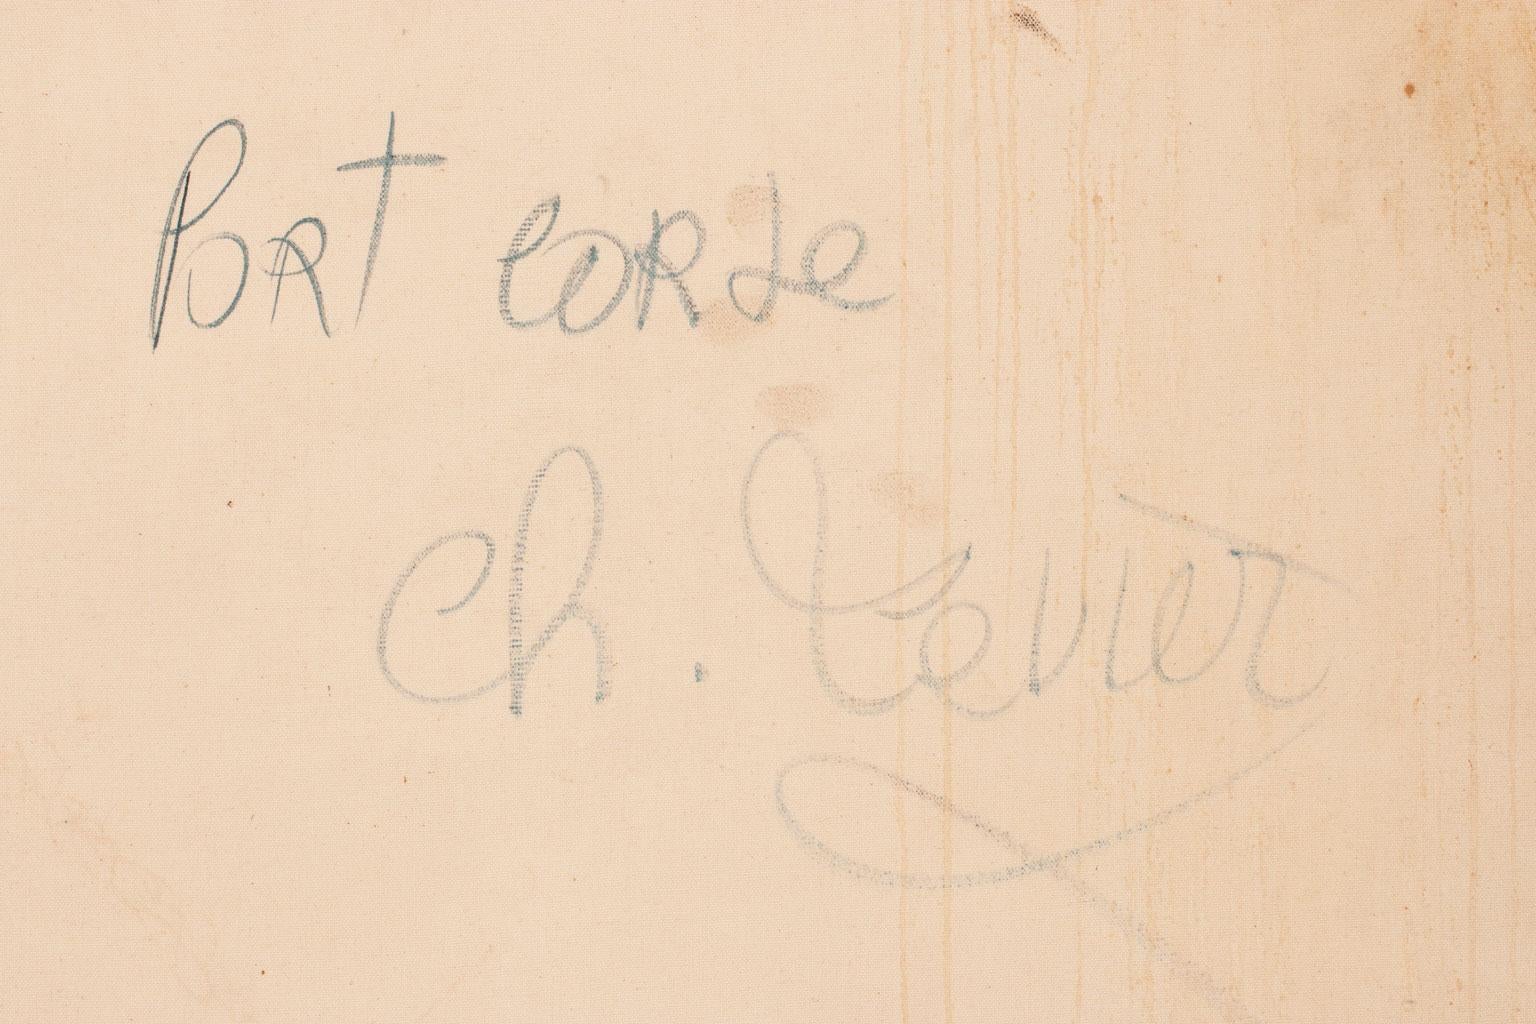 Port Corse
Ch. Levier